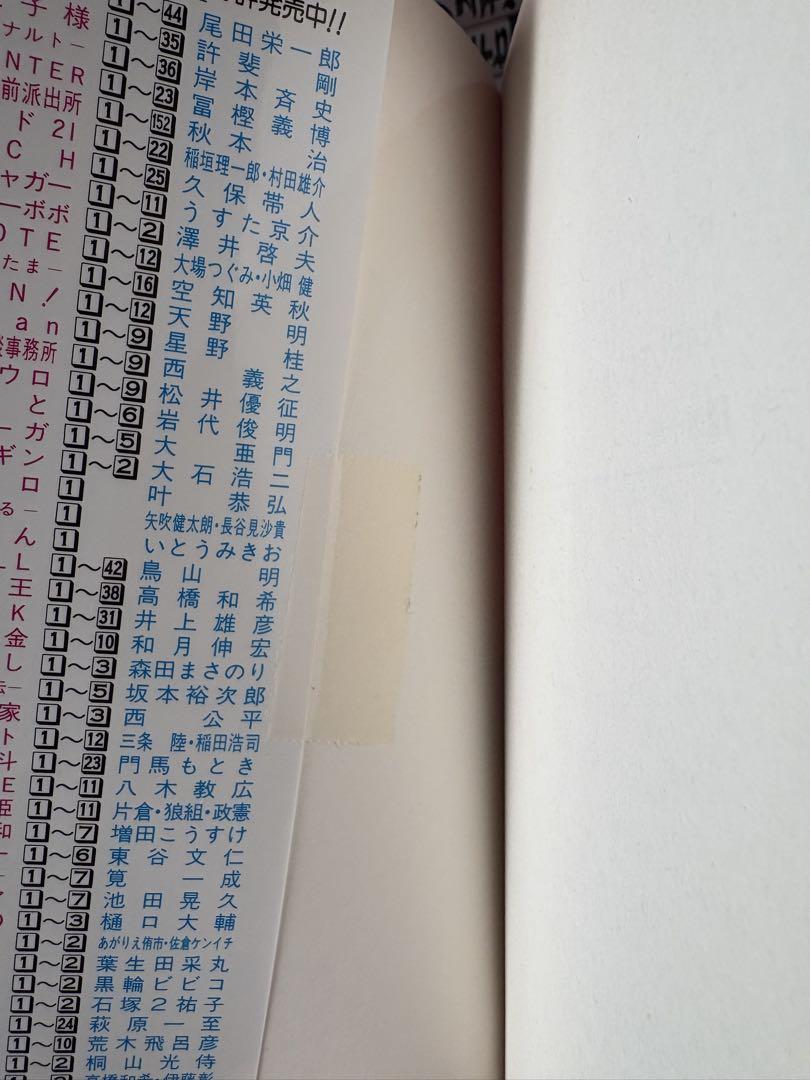 許発売中!!
1～44 尾田栄一郎
子様 1～35 許斐剛
ナルト― 1～36 岸本斉史
NTER 1～23 冨樫義博
前派出所 1～152 秋本治
ド21 1～22 稲垣理一郎・村田雄介
CH 1～25 久保帯人
ャガー 1～11 うすた京介
ーボボ 1～2 澤井啓夫
OTE 1～12 大場つぐみ・小畑健
たま― 1～16 空知英秋
N! 1～12 天野明
an 1～9 星野桂
事務所 1～9 西義之
ウロ 1～9 松井優征
と 1～6 岩代俊明
ーガン 1～5 大亜門
ギン 1～2 大石浩二
ロ 1 叶恭弘
る― 1 矢吹健太朗・長谷見沙貴
ん 1 いとうみきお
L 1～42 鳥山明
王 1～38 高橋和希
K 1～31 井上雄彦
金 1～10 和月伸宏
し 1～3 森田まさのり
― 1～5 坂本裕次郎
家 1～3 西公平
ト 1～12 三条陸・稲田浩司
斗 1～23 門馬もとき
E 1～11 八木教広
臣 1～11 片倉・狼組・政憲
和 1～7 増田こうすけ
1～6 東谷文仁
1～7 筧一成
1～7 池田晃久
1～3 樋口大輔
1～2 あがりえ侑市・佐倉ケンイチ
1～2 葉生田采丸
1～2 黒輪ビビコ
1～2 石塚2祐子
1～24 萩原一至
1～10 荒木飛呂彦
1～2 桐山光侍
高橋和希・伊藤彰